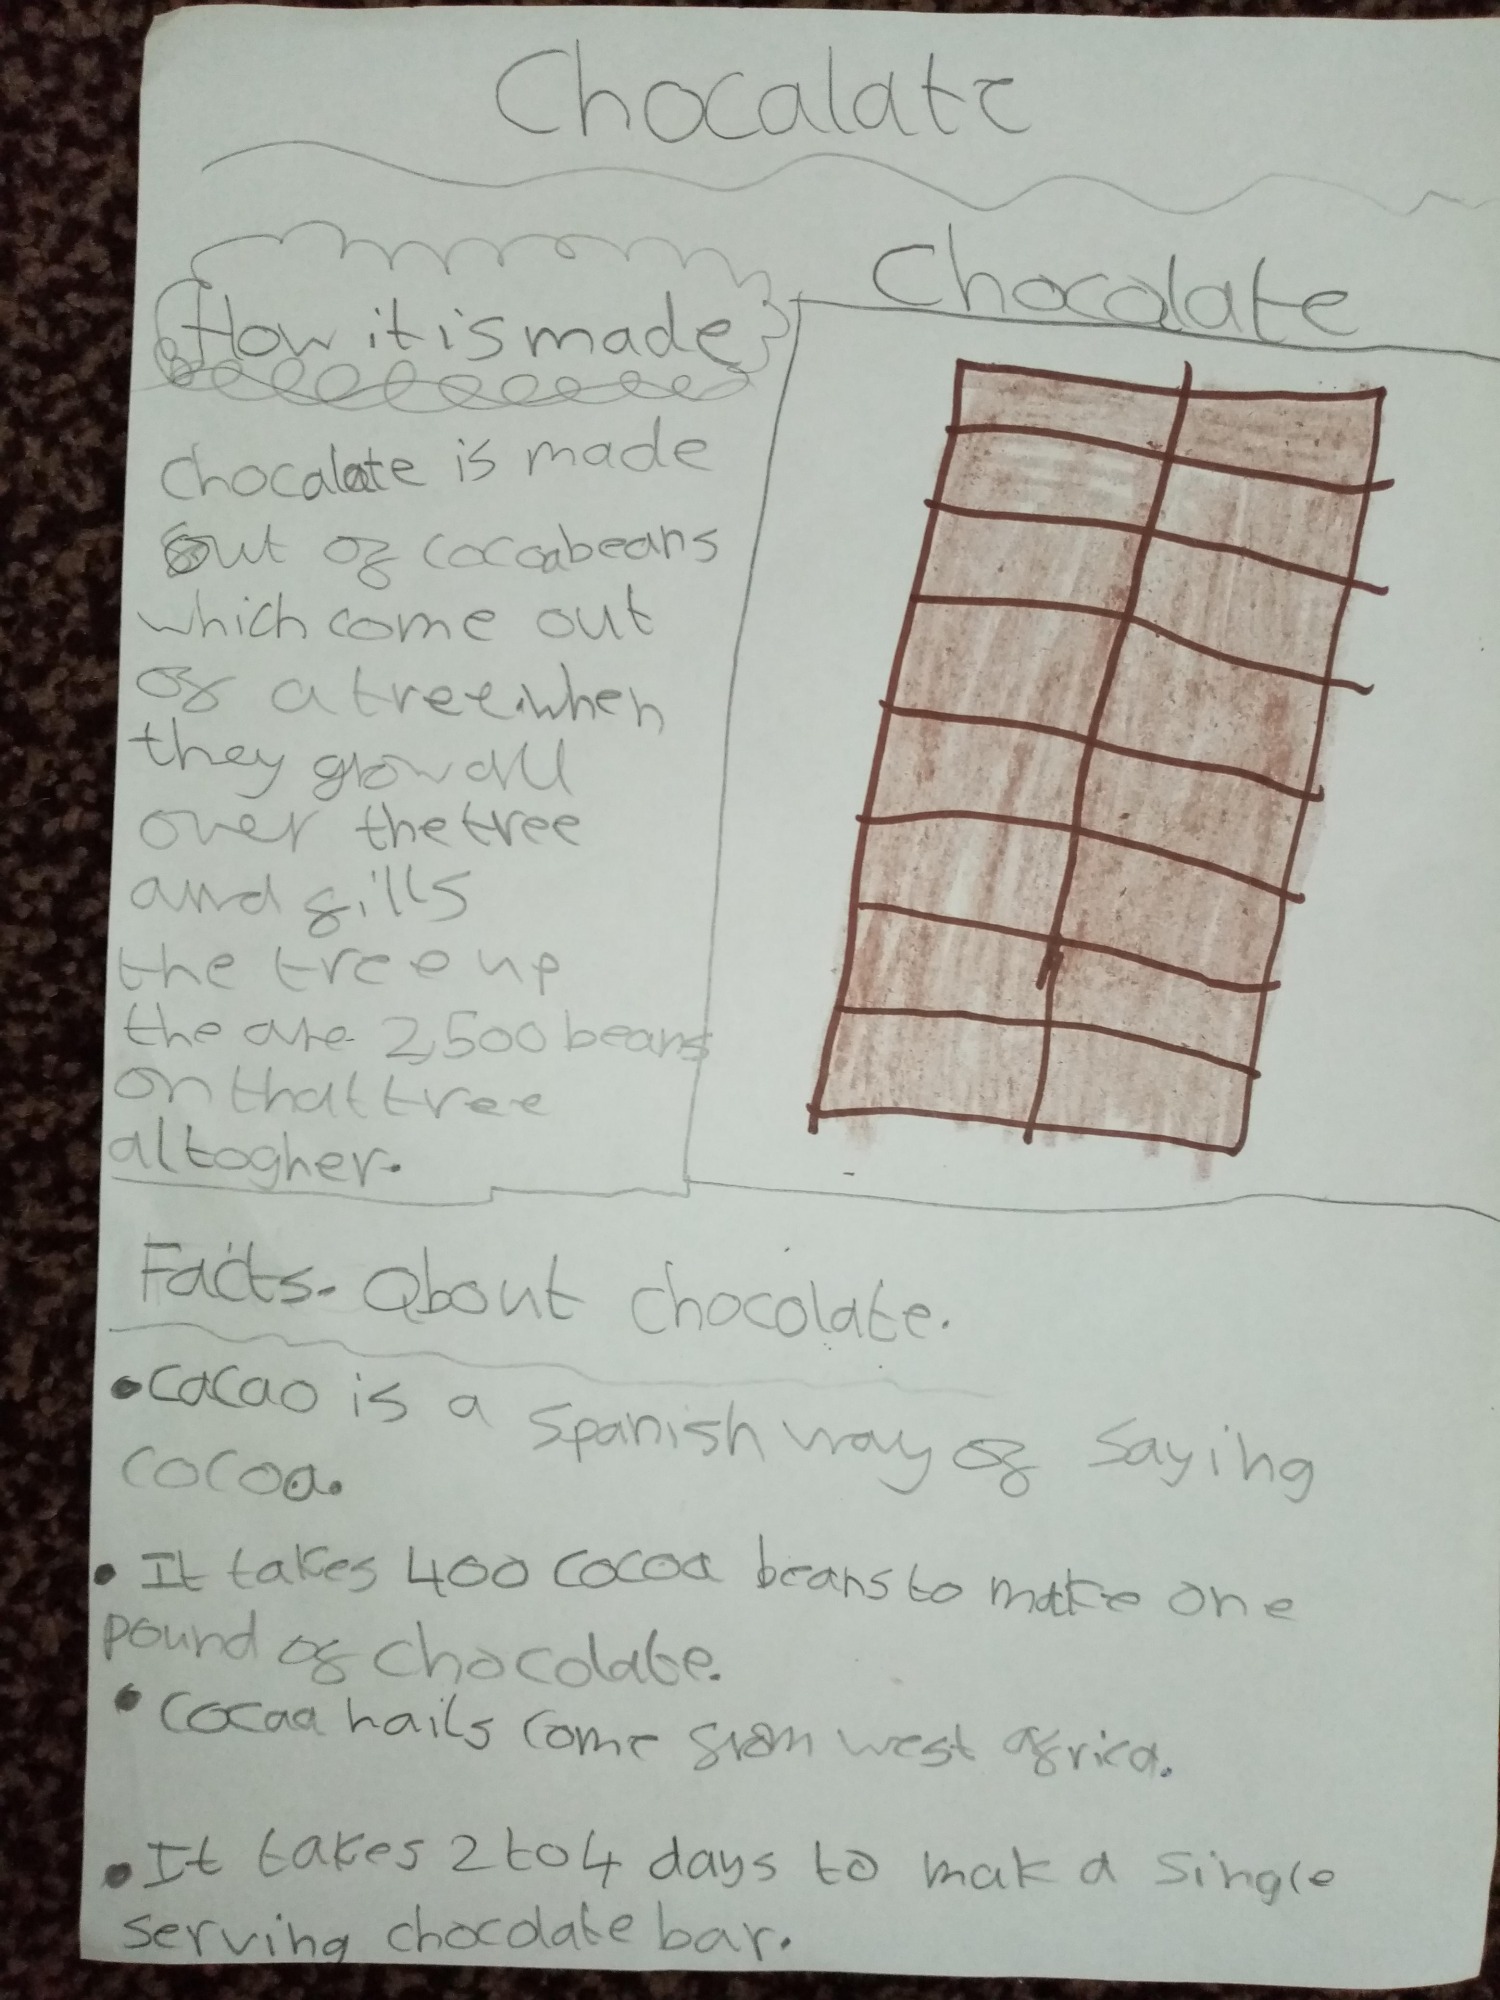 Chocalate
How it is made
chocalate is made
out of cocoabeans
which come out
of a tree.when
they grow all
over the tree
and fills
the tree up
the are 2,500 beans
on that tree
altogher.
Chocolate
Facts. About chocolate.
•cacao is a Spanish way of saying
cocoa.
• It takes 400 cocoa beans to make one
pound of chocolate.
• cocaa hails come from west africa.
• It takes 2 to 4 days to mak a single
serving chocolate bar.